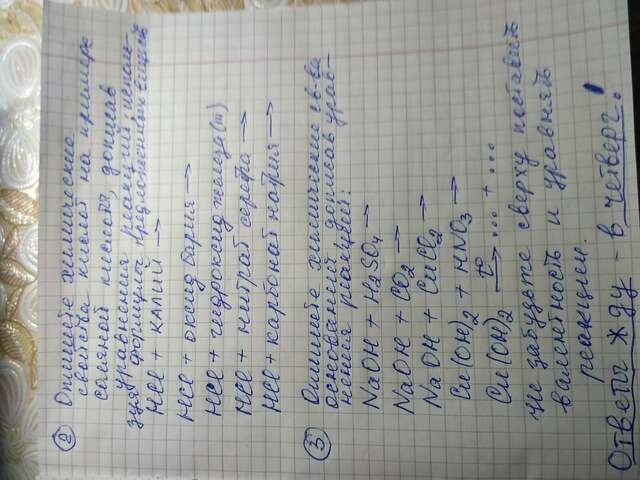 ② Опишите химические
свойства кислот на примере
соляной кислоты, дописав
уравнения реакций, исполь-
зуя формулы предложенных веществ
HCl + калий →
HCl + оксид бария →
HCl + гидроксид железа (III)
HCl + нитрат серебра →
HCl + карбонат натрия →
③ Опишите химические св-ва
оснований, дописав урав-
нения реакций:
NaOH + H₂SO₄ →
NaOH + CO₂ →
NaOH + CuCl₂ →
Cu(OH)₂ + HNO₃ →
Cu(OH)₂ t° → ... + ...
Не забудьте сверху поставить
валентность и уравнять
реакции.
Ответы жду - в четверг!